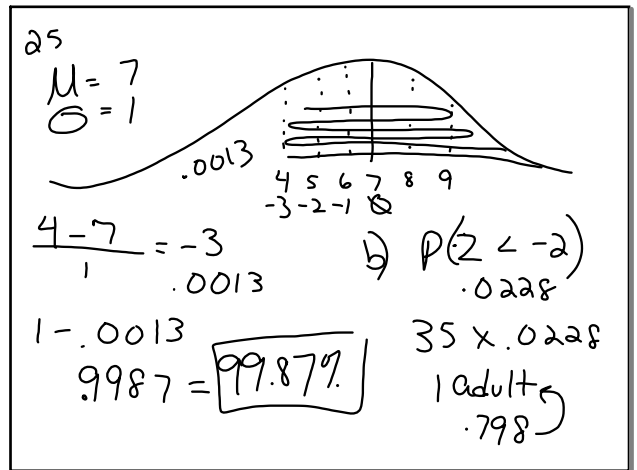 25
μ = 7
σ = 1
.0013
4 5 6 7 8 9
-3 -2 -1 0
4 - 7 / 1 = -3
.0013
1 - .0013
.9987 = 99.87%
b) P(Z < -2)
.0228
35 x .0228
1 adult
.798